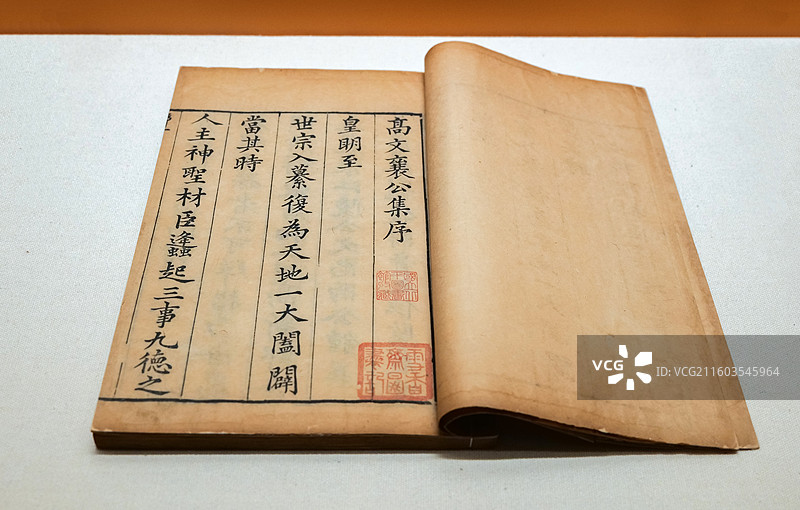 高文襄公集序
皇明至
世宗入纂復為天地一大闔闢
當其時
人主神聖材臣蠭起三事九德之
VCG
VCG211603545964